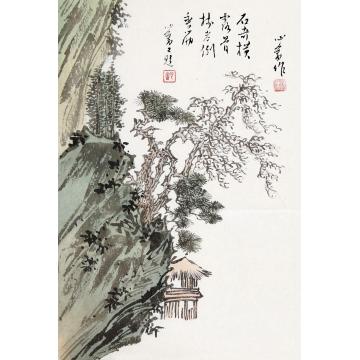 石奇横
露骨
樹老倒
垂筋
心畬又題
心畬作